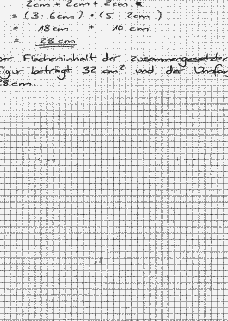 2cm + 2cm + 2cm
= (3 · 6cm) + (5 · 2cm)
= 18cm + 10 cm
= 28cm
der Flächeninhalt der zusammengesetzten
Figur beträgt 32 cm² und der Umfang
28cm.